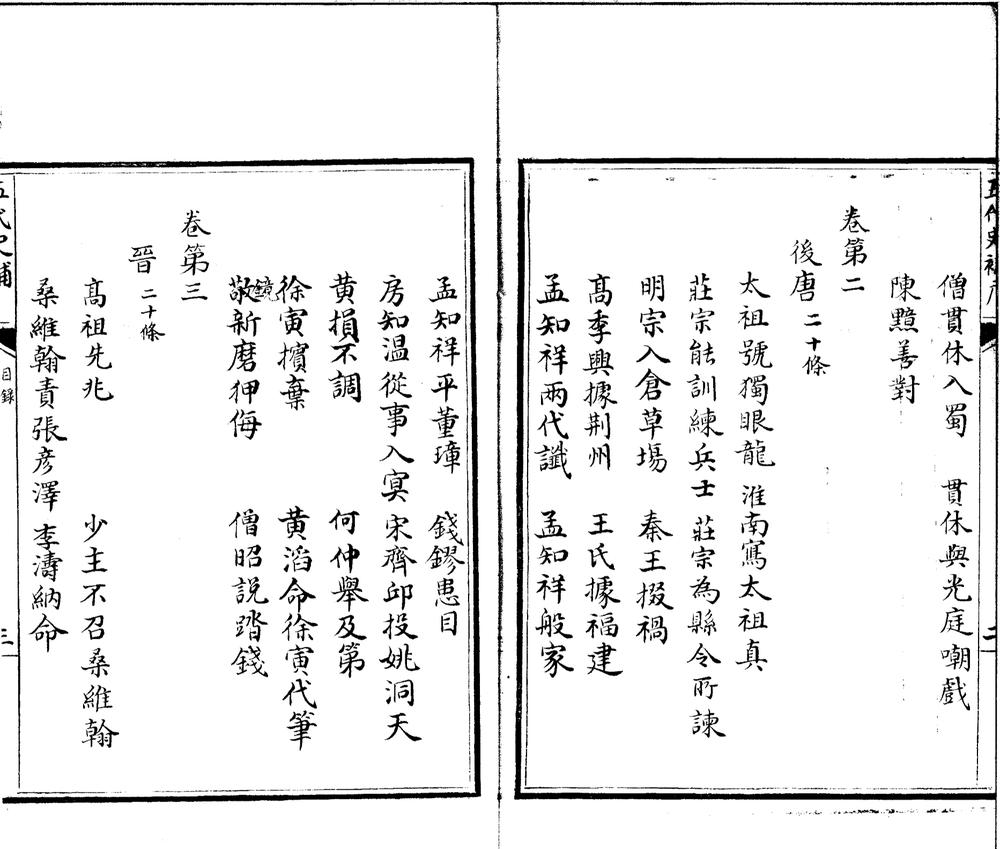 僧貫休入蜀　貫休與光庭嘲戲
陳黯善對
卷第二
後唐二十條
太祖號獨眼龍　淮南寫太祖真
莊宗能訓練兵士　莊宗為縣令所諫
明宗入倉草場　秦王掇禍
髙季興據荆州　王氏據福建
孟知祥兩代讖　孟知祥般家
孟知祥平董璋　錢鏐患目
房知温從事入冥　宋齊邱投姚洞天
黄損不調　何仲舉及第
徐寅擯棄　黄滔命徐寅代筆
敬新磨狎侮　僧昭説踏錢
鏡
卷第三
晉二十條
髙祖先兆　少主不召桑維翰
桑維翰責張彦澤　李濤納命
五代史補
目錄
三